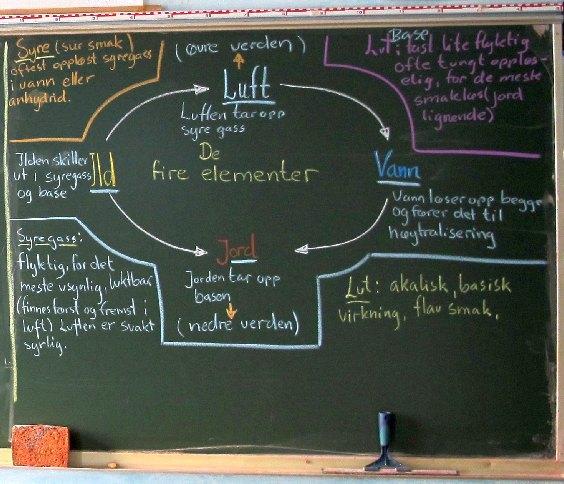 Syre (sur smak)
oftest oppløst syregass
i vann eller
anhydrid.
(Øvre verden)
Luft
Luften tar opp
syre gass
Base
Lut i fast lite flyktig
ofte tungt oppløs-
elig, for de meste
smakløs (jord
lignende)
De
fire elementer
Ilden skiller
ut i syregass
og base
Ild
Vann
Vann løser opp begge
og fører det til
høytralisering
Jord
Jorden tar opp
basen
(nedre verden)
Syregass:
flyktig, for det
meste usynlig, luktbar
(finnes først og fremst i
luft) Luften er svakt
syrlig.
Lut: akalisk, basisk
virkning, flau smak,